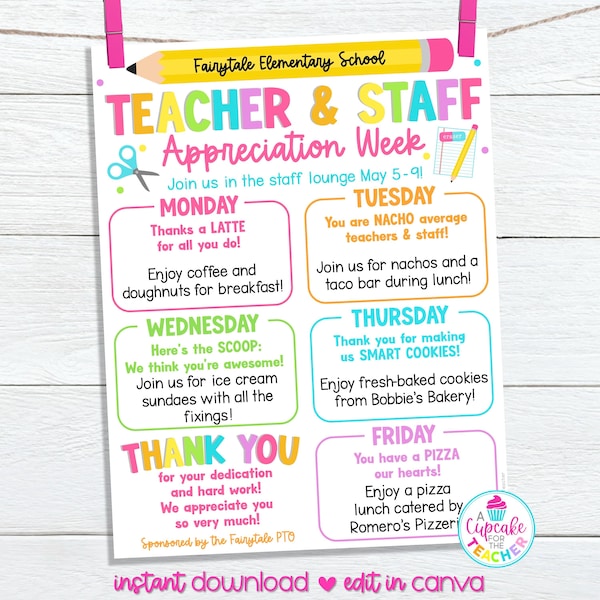 Fairytale Elementary School
TEACHER & STAFF
Appreciation Week
eraser
Join us in the staff lounge May 5-9!
MONDAY
Thanks a LATTE
for all you do!
Enjoy coffee and
doughnuts for breakfast!
TUESDAY
You are NACHO average
teachers & staff!
Join us for nachos and a
taco bar during lunch!
WEDNESDAY
Here's the SCOOP:
We think you're awesome!
Join us for ice cream
sundaes with all the
fixings!
THURSDAY
Thank you for making
us SMART COOKIES!
Enjoy fresh-baked cookies
from Bobbie's Bakery!
THANK YOU
for your dedication
and hard work!
We appreciate you
so very much!
Sponsored by the Fairytale PTO
FRIDAY
You have a PIZZA
our hearts!
Enjoy a pizza
lunch catered by
Romero's Pizzeri
A
Cupcake
FOR THE
TEACHER
instant download edit in canva